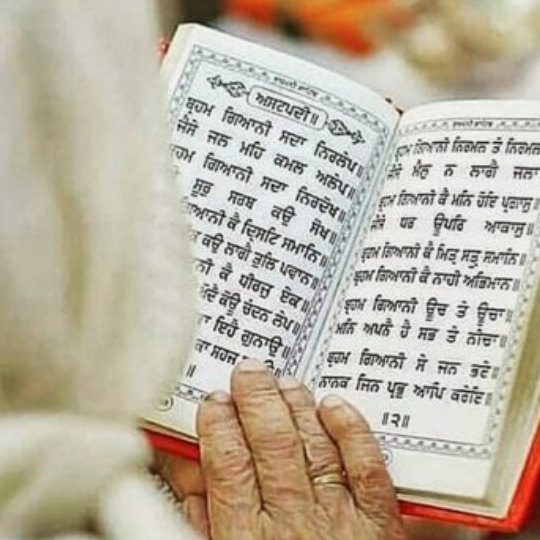 ਅਸਟਪਦੀ॥
ਬ੍ਰਹਮ ਗਿਆਨੀ ਸਦਾ ਨਿਰਲੇਪ॥
ਜੈਸੇ ਜਲ ਮਹਿ ਕਮਲ ਅਲੇਪ॥
ਹਮ ਗਿਆਨੀ ਸਦਾ ਨਿਰਦੋਖ॥
ਸੂਰੁ ਸਰਬ ਕਉ ਸੋਖ॥
ਗਿਆਨੀ ਕੈ ਦ੍ਰਿਸਟਿ ਸਮਾਨਿ॥
ਕਉ ਲਾਗੈ ਤੁਲਿ ਪਵਾਨ॥
ਨੀ ਕੈ ਧੀਰਜੁ ਏਕ॥
ਕੋਊ ਚੰਦਨ ਲੇਪ॥
ਇਹੈ ਗੁਨਾਉ॥
ਕਾ ਸਹਜ
॥
ਬ੍ਰਹਮ ਗਿਆਨੀ ਨਿਰਮਲ ਤੇ ਨਿਰਮਲ
ਜੈਸੇ ਮੈਲੁ ਨ ਲਾਗੈ ਜਲਾ
ਬ੍ਰਹਮ ਗਿਆਨੀ ਕੈ ਮਨਿ ਹੋਇ ਪ੍ਰਗਾਸੁ॥
ਜੈਸੇ ਧਰ ਊਪਰਿ ਆਕਾਸੁ॥
ਬ੍ਰਹਮ ਗਿਆਨੀ ਕੈ ਮਿਤ੍ਰ ਸਤ੍ਰੁ ਸਮਾਨਿ॥
ਬ੍ਰਹਮ ਗਿਆਨੀ ਕੈ ਨਾਹੀ ਅਭਿਮਾਨ॥
ਬ੍ਰਹਮ ਗਿਆਨੀ ਊਚ ਤੇ ਊਚਾ॥
ਮਨਿ ਅਪਨੈ ਹੈ ਸਭ ਤੇ ਨੀਚਾ॥
ਬ੍ਰਹਮ ਗਿਆਨੀ ਸੇ ਜਨ ਭਏ॥
ਨਾਨਕ ਜਿਨ ਪ੍ਰਭੁ ਆਪਿ ਕਰੇਇ॥
॥੨॥